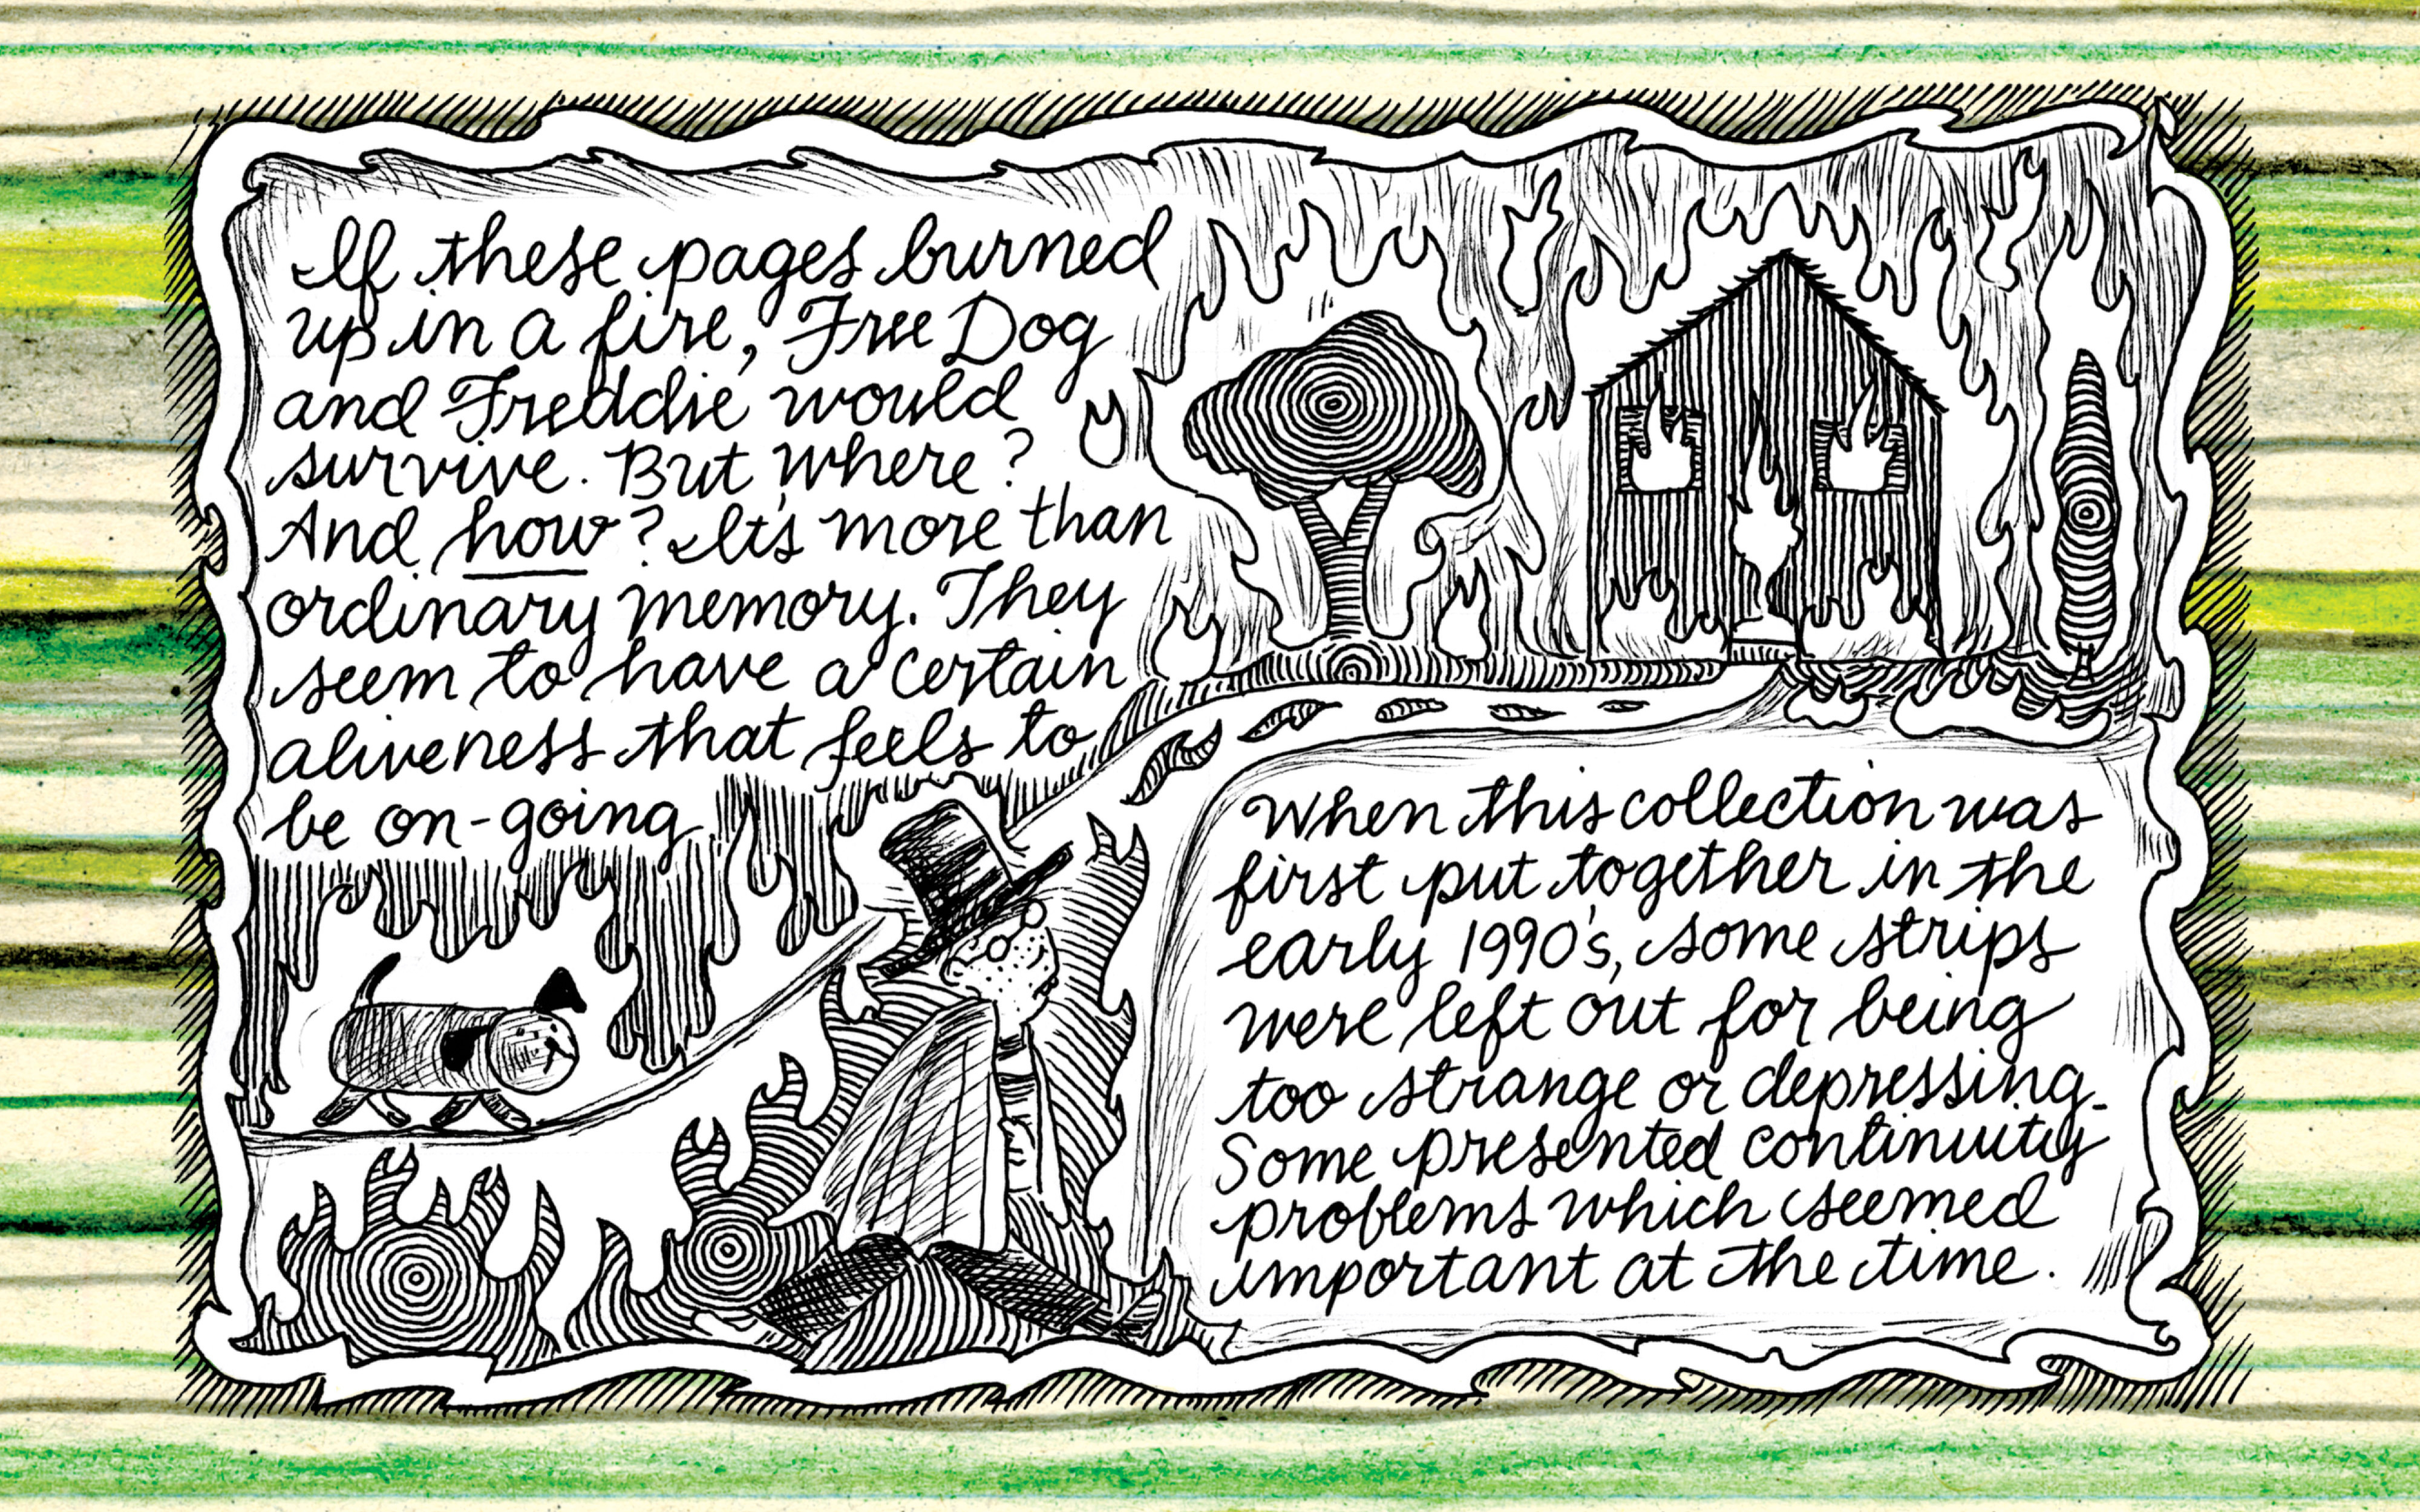 If these pages burned
up in a fire, Free Dog
and Freddie would
survive. But where?
And how? It's more than
ordinary memory. They
seem to have a certain
aliveness that feels to
be on-going
When this collection was
first put together in the
early 1990's, some strips
were left out for being
too strange or depressing.
Some presented continuity
problems which seemed
important at the time.